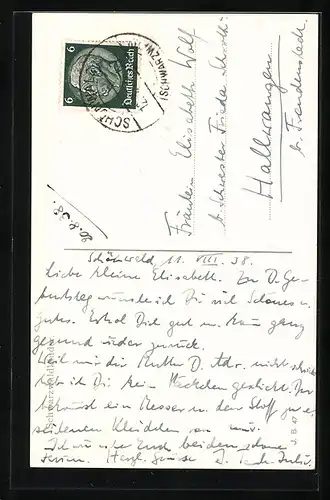 6 Deutsches Reich 6
SCHÖNWALD (SCHWARZW)
Fräulein Elisabeth Wolf
b. Schwester Frieda
Hallwangen
b. Freudenstadt
20.8.38.
Schönwald 11. VIII. 38.
Liebe kleine Elisabeth. Zu D. Ge-
burtstag wünsche ich Dir viel Schönes u.
gutes. Erhol Dich gut u. komm ganz
gesund wieder zurück.
Weil mir die Mutter D. Adr. nicht
hab ich Dir kein Päckchen geschickt. Du
bekommst ein Messer u. den Stoff zu e.
seidenen Kleidchen von mir.
Euch beiden schöne
Ferien. Herzl. Grüsse D.
J. B 47